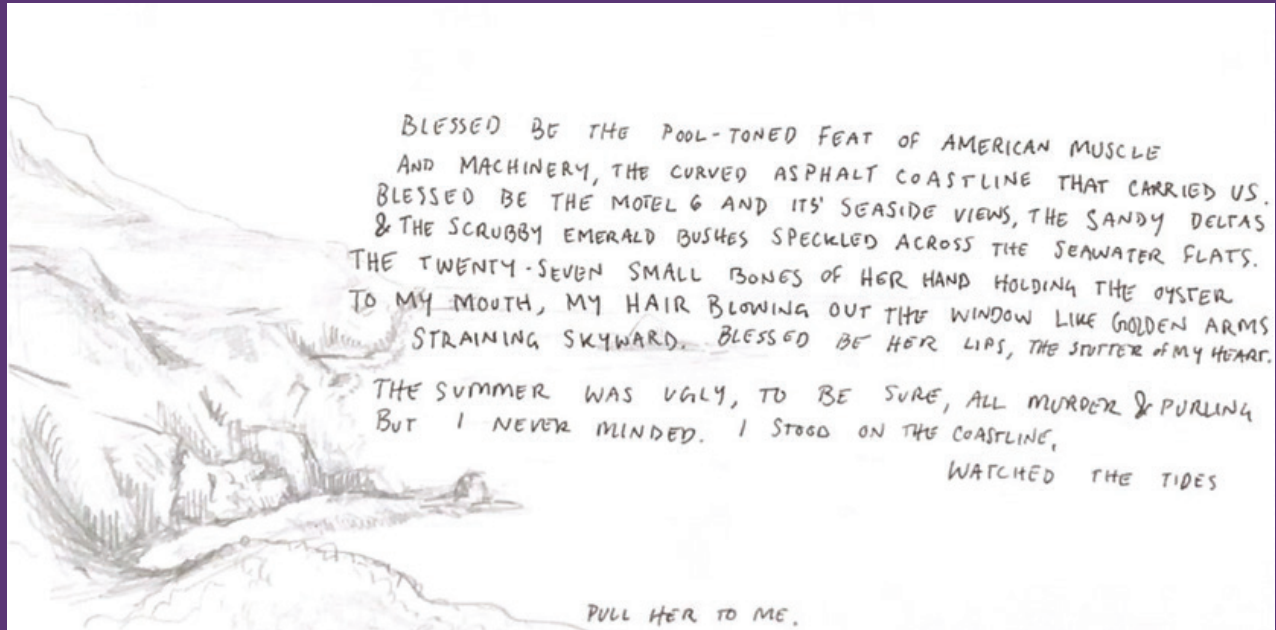 BLESSED BE THE POOL-TONED FEAT OF AMERICAN MUSCLE
AND MACHINERY, THE CURVED ASPHALT COASTLINE THAT CARRIED US.
BLESSED BE THE MOTEL 6 AND ITS' SEASIDE VIEWS, THE SANDY DELTAS
& THE SCRUBBY EMERALD BUSHES SPECKLED ACROSS THE SEAWATER FLATS.
THE TWENTY-SEVEN SMALL BONES OF HER HAND HOLDING THE OYSTER
TO MY MOUTH, MY HAIR BLOWING OUT THE WINDOW LIKE GOLDEN ARMS
STRAINING SKYWARD. BLESSED BE HER LIPS, THE STUTTER of MY HEART.
THE SUMMER WAS UGLY, TO BE SURE, ALL MURDER & PURLING
BUT I NEVER MINDED. I STOOD ON THE COASTLINE,
WATCHED THE TIDES
PULL HER TO ME.